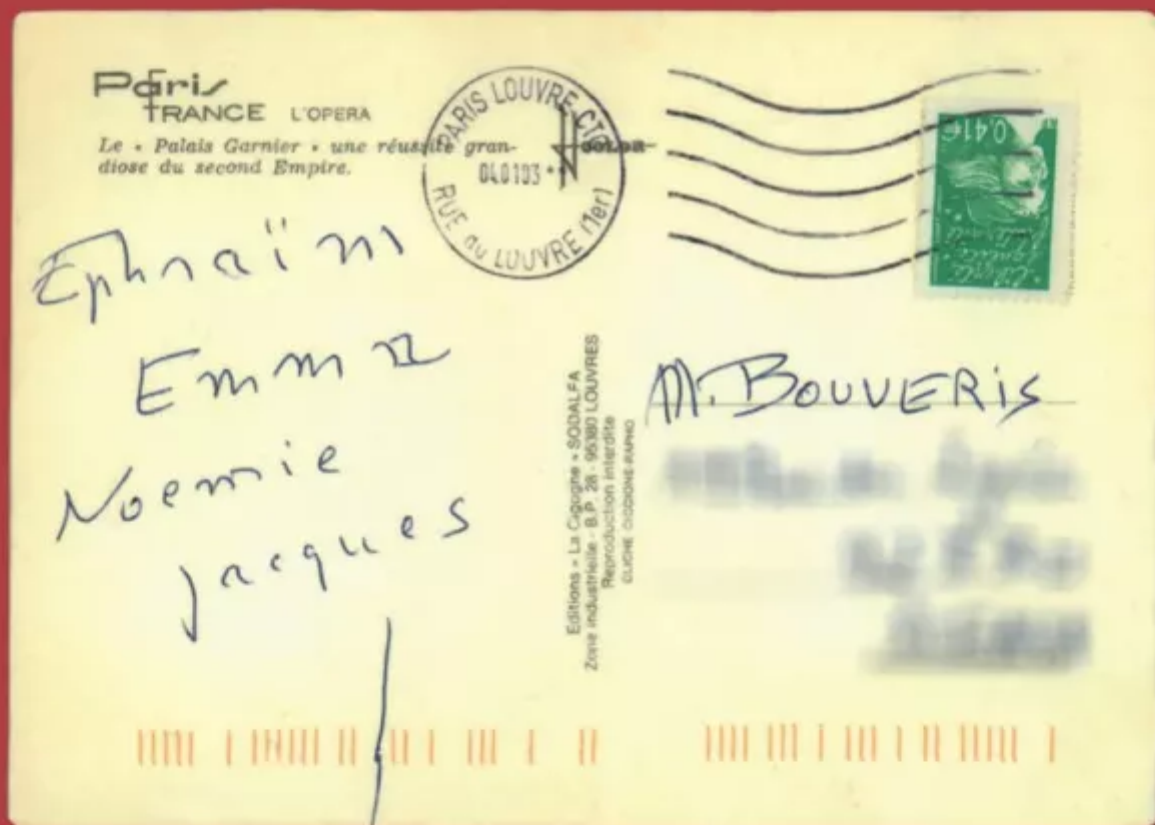 Paris
FRANCE L'OPERA
Le « Palais Garnier » une réussite gran-
diose du second Empire.
PARIS LOUVRE CTC
040103
RUE du LOUVRE (1er)
0,41€
Ephraïm
Emma
Noemie
Jacques
Editions « La Cigogne » SODALFA
Zone industrielle - B.P. 28 - 95380 LOUVRES
Reproduction interdite
M. BOUVERIS